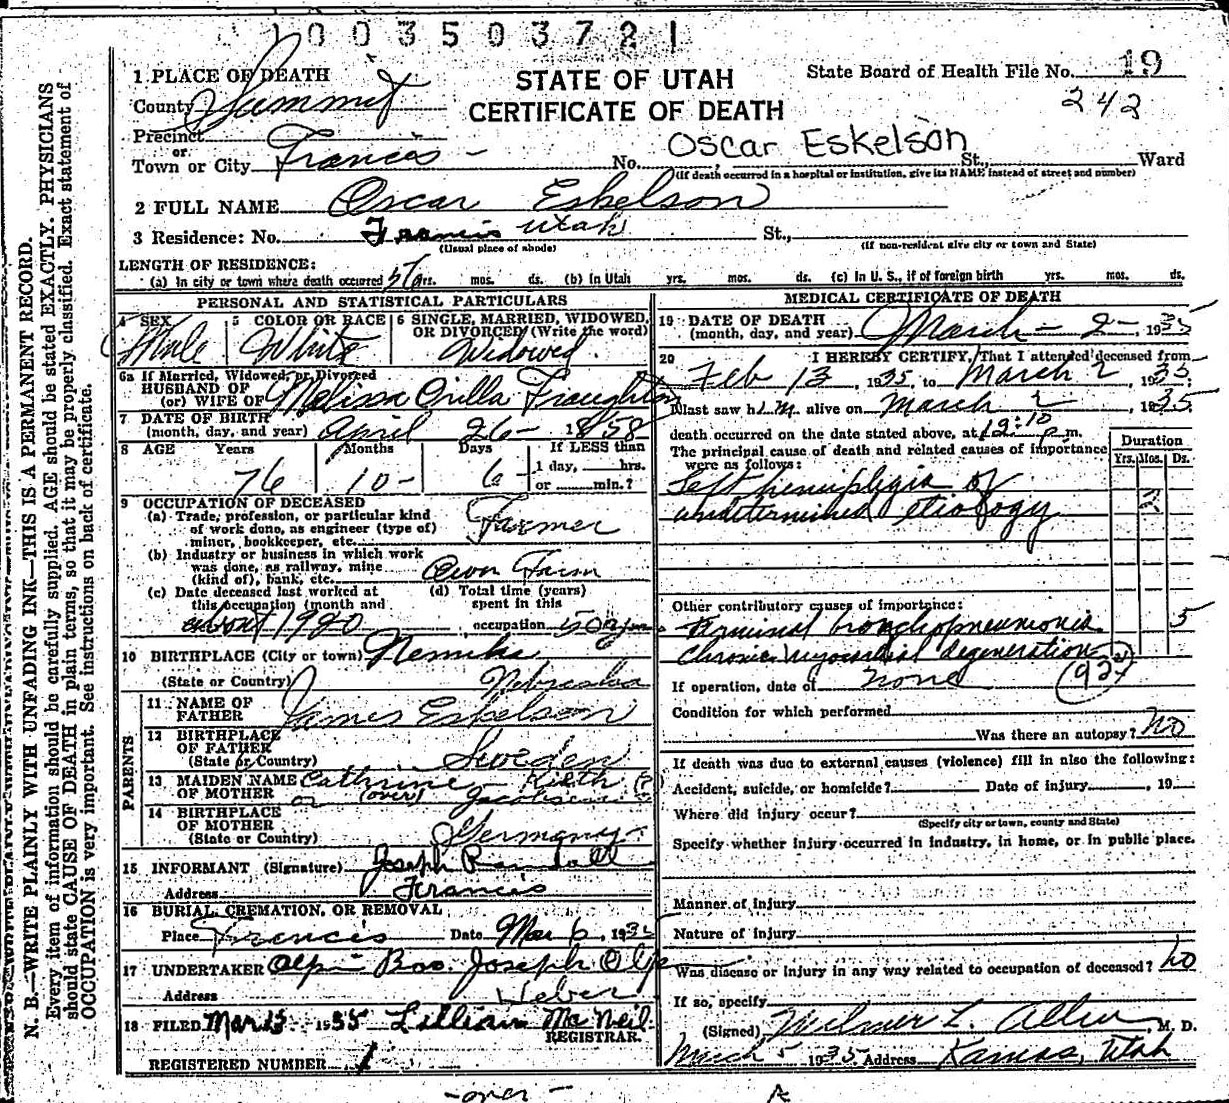 1003503721
STATE OF UTAH
CERTIFICATE OF DEATH
State Board of Health File No. 19
242
1 PLACE OF DEATH
County Summit
Precinct
or
Town or City Francis - No. Oscar Eskelson St., Ward
(If death occurred in a hospital or institution, give its NAME instead of street and number)
2 FULL NAME Oscar Eskelson
3 Residence: No. Francis Utah St.,
(Usual place of abode) (If non-resident give city or town and State)
LENGTH OF RESIDENCE:
(a) In city or town where death occurred yrs. mos. ds. (b) In Utah yrs. mos. ds. (c) In U. S., if of foreign birth yrs. mos. ds.
PERSONAL AND STATISTICAL PARTICULARS
4 SEX 5 COLOR OR RACE 6 SINGLE, MARRIED, WIDOWED,
OR DIVORCED (Write the word)
Male White Widowed.
6a If Married, Widowed, or Divorced
HUSBAND OF
(or) WIFE OF Melissa Orilla Fraughton
7 DATE OF BIRTH
(month, day, and year) April 26- 1858
8 AGE Years Months Days If LESS than
1 day, hrs.
or min.?
76 10- 6
9 OCCUPATION OF DECEASED
(a) Trade, profession, or particular kind
of work done, as engineer (type of)
miner, bookkeeper, etc. Farmer
(b) Industry or business in which work
was done, as railway, mine
(kind of), bank, etc. Own Farm
(c) Date deceased last worked at
this occupation (month and
about 1920
(d) Total time (years)
spent in this
occupation 50 yrs
10 BIRTHPLACE (City or town) Nemiha
(State or Country) Nebraska
PARENTS
11 NAME OF
FATHER James Eskelson
12 BIRTHPLACE
OF FATHER
(State or Country) Sweden
13 MAIDEN NAME
OF MOTHER Cathrine Kieth (?)
or (over) Jacobsen
14 BIRTHPLACE
OF MOTHER
(State or Country) Germany
15 INFORMANT (Signature) Joseph Randall
Address Francis
16 BURIAL, CREMATION, OR REMOVAL
Place Francis Date Mar 6, 1935
17 UNDERTAKER Olpin Bros. Joseph Olpin
Address Heber
18 FILED Mar 5 1935 Lillian McNeil
REGISTRAR.
REGISTERED NUMBER 1
MEDICAL CERTIFICATE OF DEATH
19 DATE OF DEATH
(month, day, and year) March - 2-, 1935
20 I HEREBY CERTIFY, That I attended deceased from
Feb 13, 1935, to March 2, 1935
I last saw him alive on March 2, 1935
death occurred on the date stated above, at 12:10 p m.
The principal cause of death and related causes of importance
were as follows:
Duration
Yrs. Mos. Ds.
Left hemiplegia of
undetermined etiology
Other contributory causes of importance:
Terminal bronchopneumonia 5
Chronic myocardial degeneration
If operation, date of none
Condition for which performed
Was there an autopsy? no
If death was due to external causes (violence) fill in also the following:
Accident, suicide, or homicide? Date of injury, 19
Where did injury occur?
(Specify city or town, county and State)
Specify whether injury occurred in industry, in home, or in public place.
Manner of injury
Nature of injury
Was disease or injury in any way related to occupation of deceased? no
If so, specify
(Signed) Wilmer L. Allen, M. D.
March 5 1935 Address Kamas, Utah
- over -
N. B.—WRITE PLAINLY WITH UNFADING INK—THIS IS A PERMANENT RECORD.
Every item of information should be carefully supplied. AGE should be stated EXACTLY. PHYSICIANS
should state CAUSE OF DEATH in plain terms, so that it may be properly classified. Exact statement of
OCCUPATION is very important. See instructions on back of certificate.